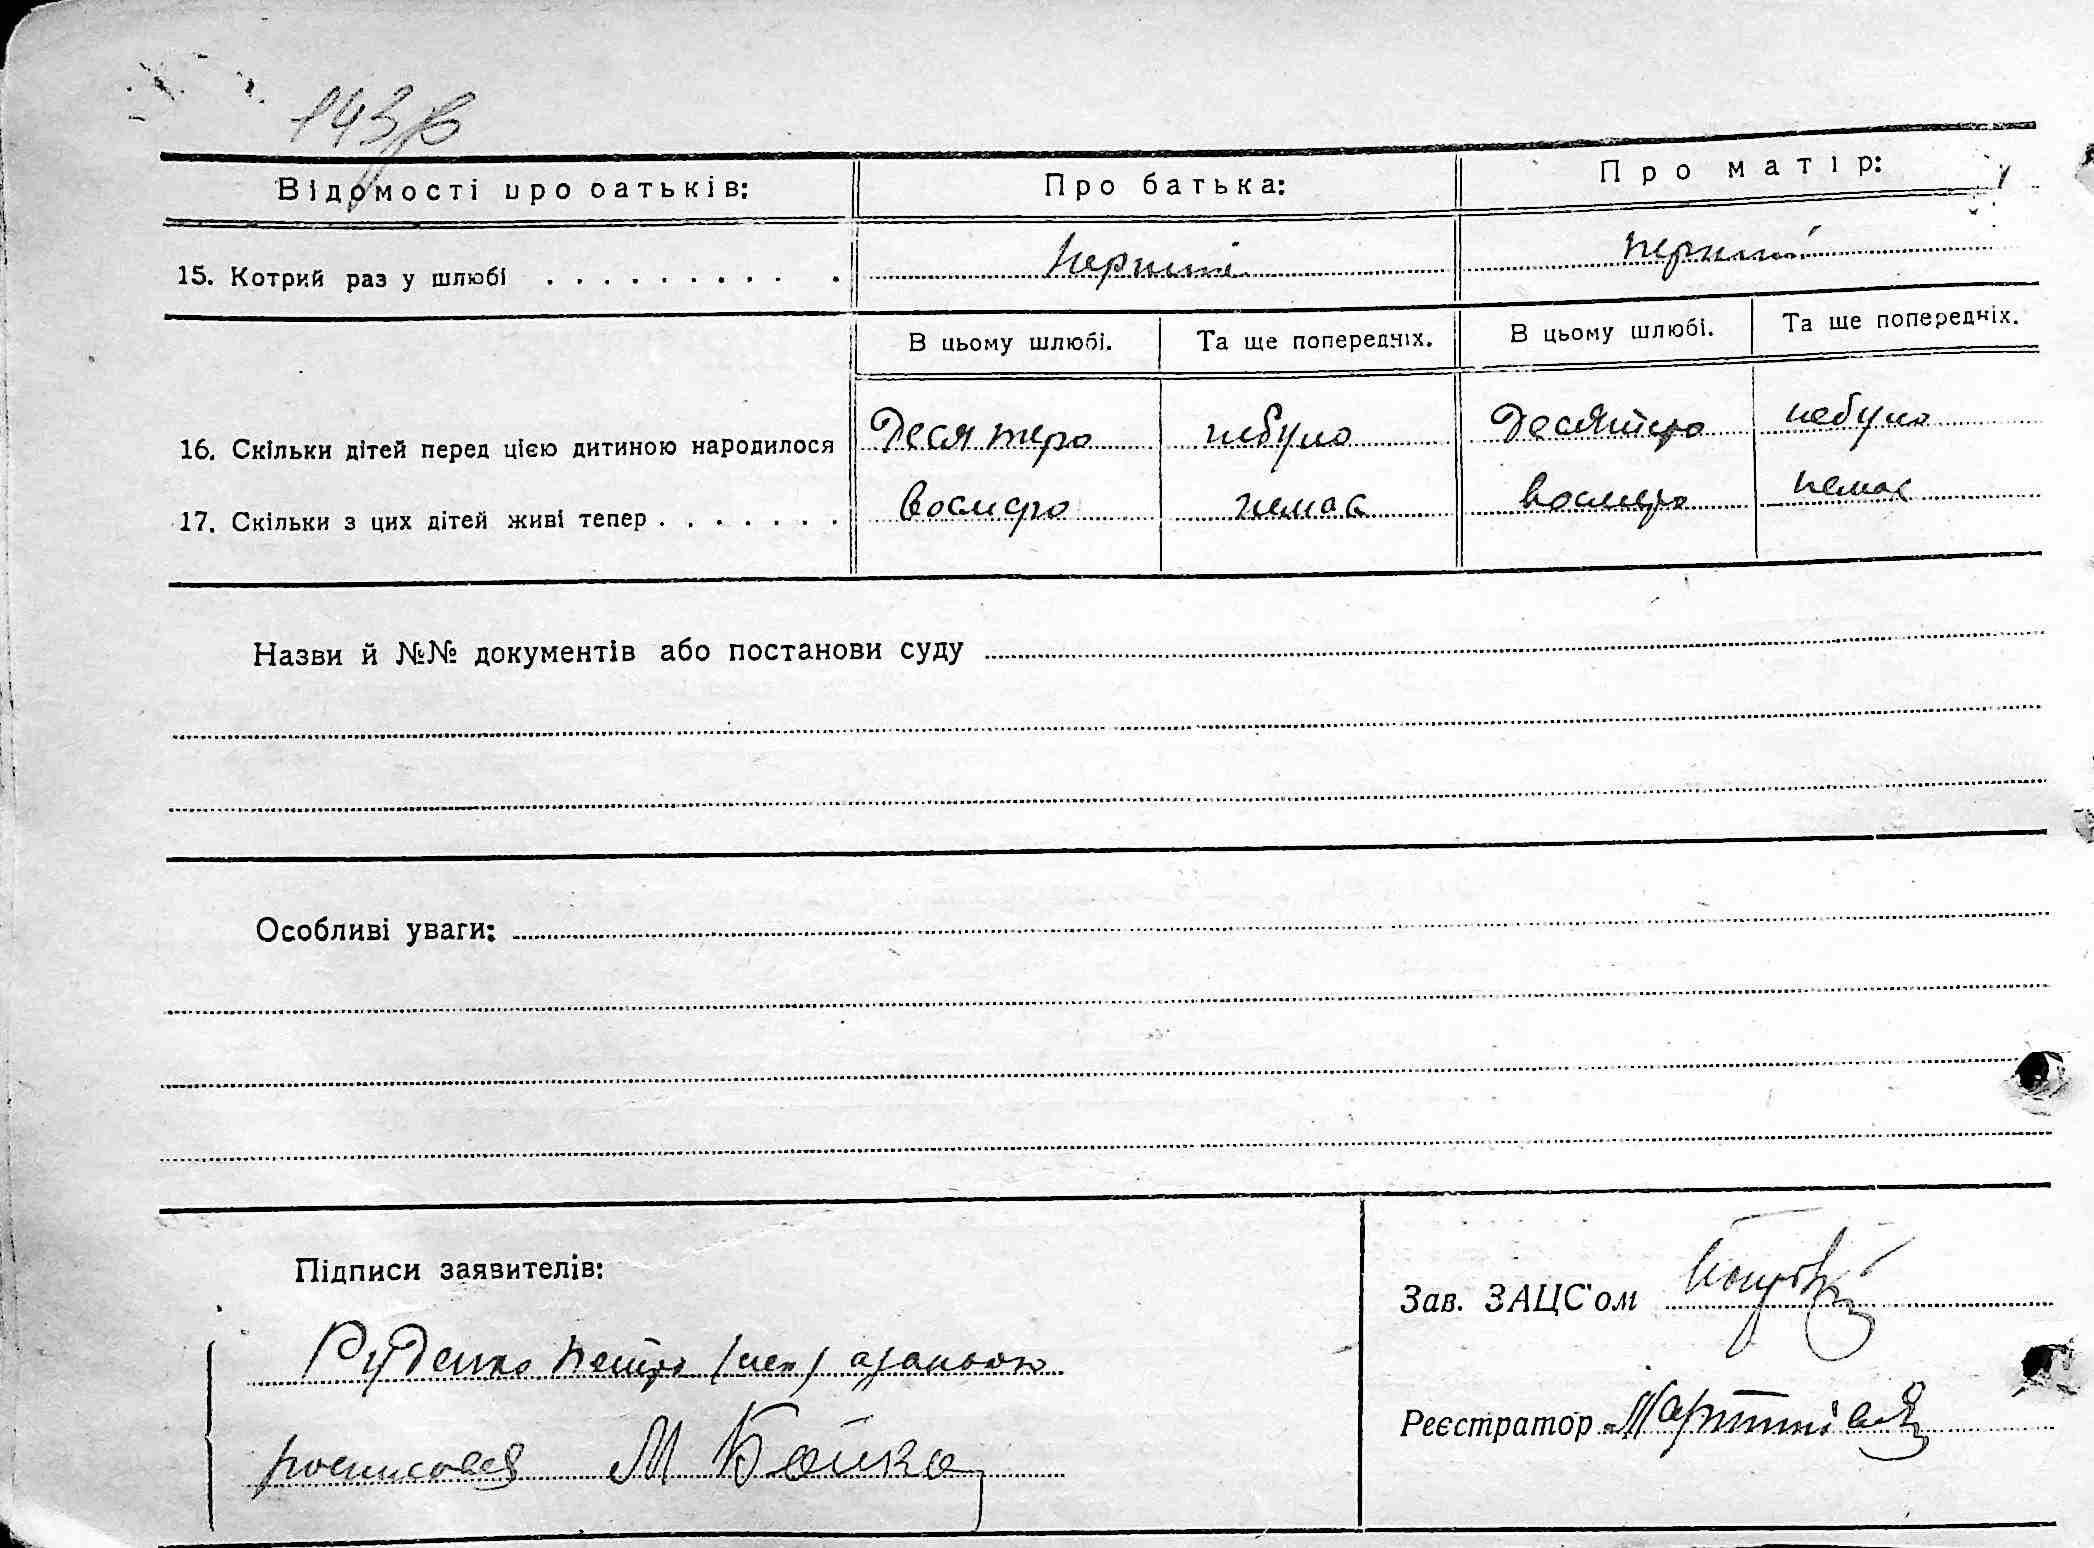 143/в
Відомості про батьків: Про батька: Про матір:
15. Котрий раз у шлюбі . . . . . . . . . . перший перший
В цьому шлюбі. Та ще попередніх. В цьому шлюбі. Та ще попередніх.
16. Скільки дітей перед цією дитиною народилося Десятеро небуло Десятеро небуло
17. Скільки з цих дітей живі тепер . . . . . . . восмеро немає восмеро немає
Назви й №№ документів або постанови суду
Особливі уваги:
Підписи заявителів:
Зав. ЗАЦС'ом
Руденко Петро (неп)
Реєстратор
росписався М Бойко